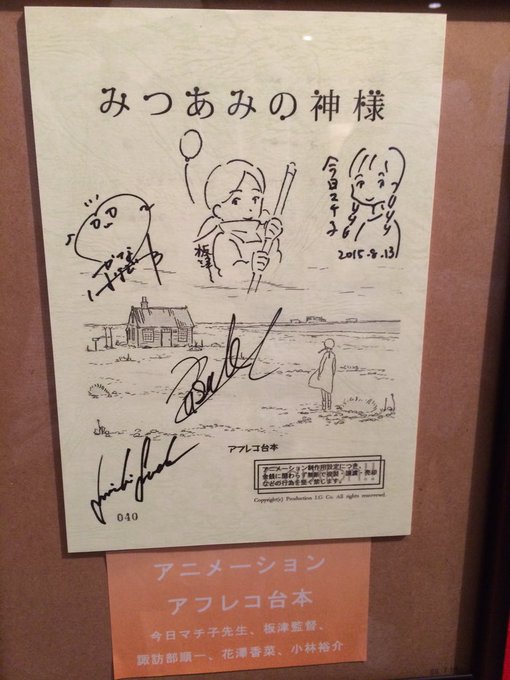 みつあみの神様
今日マチ子
2015.8.13
板津
アフレコ台本
アニメーション制作用設定につき、
金銭に関わらず無断で複製・譲渡・売却
などの行為を堅く禁じます。
Copyright(c) Production I.G Co. All rights reserved.
040
アニメーション
アフレコ台本
今日マチ子先生、板津監督、
諏訪部順一、花澤香菜、小林裕介